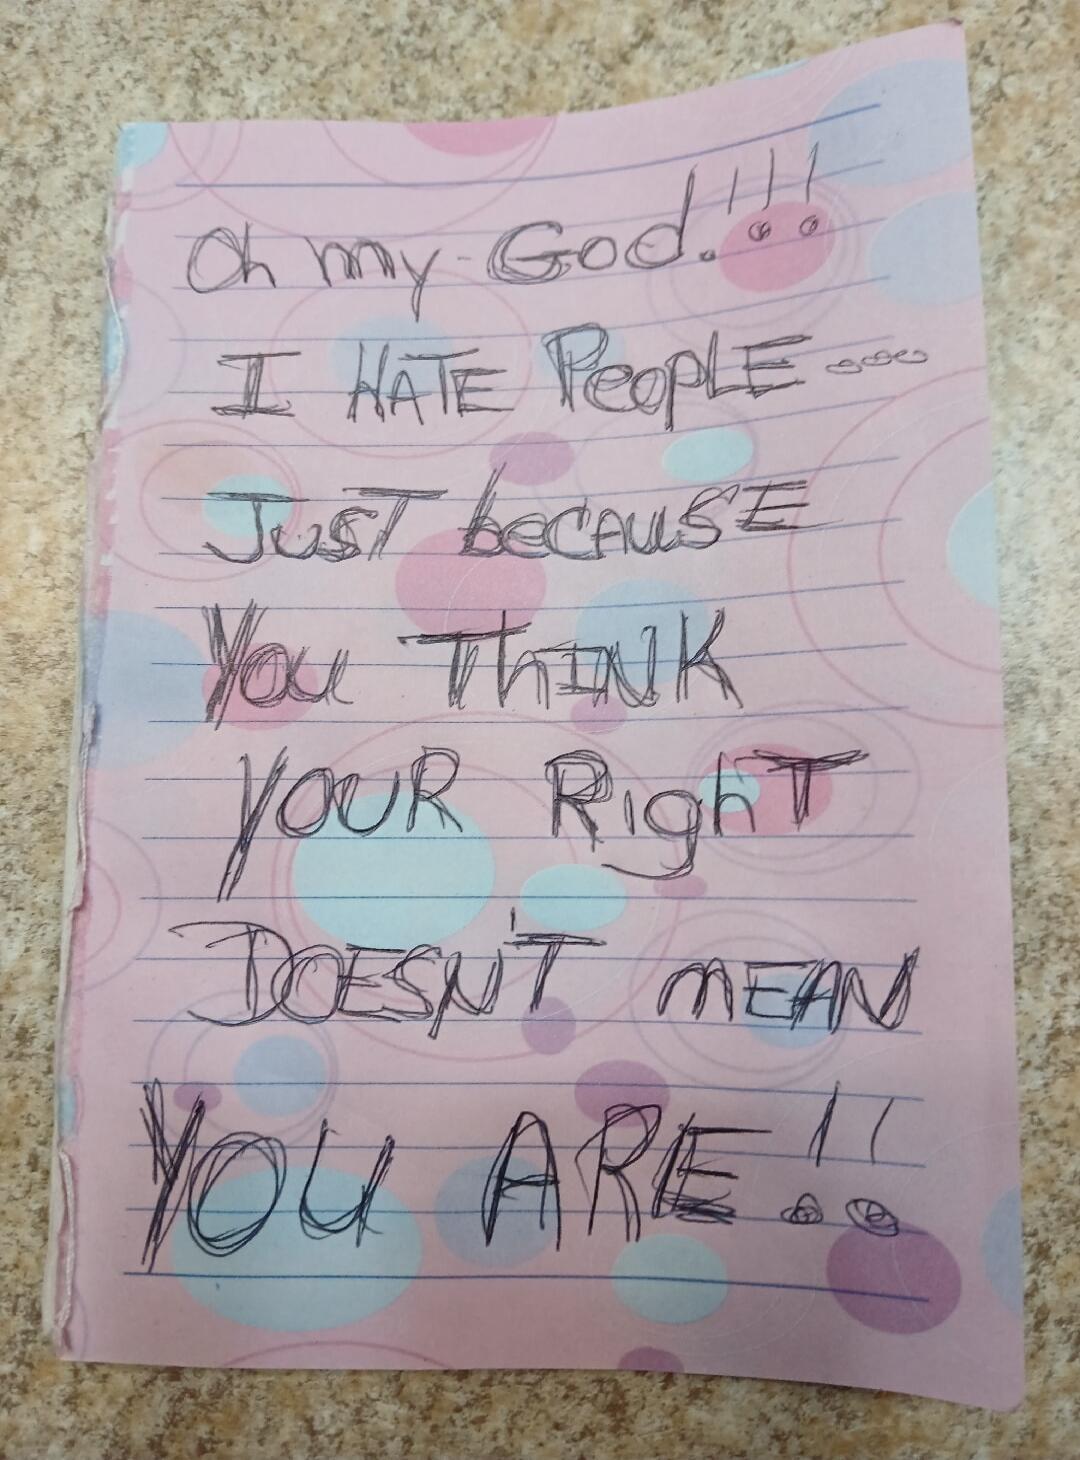 Oh my God.!!!
I HATE PeopLE...
JusT becAUSE
You ThINK
YOUR RighT
DOESN'T mEAN
YOU ARE!!